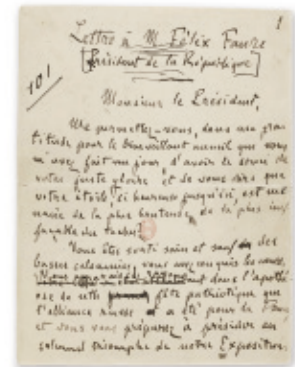 1
Lettre à M. Félix Faure
Président de la République
101
Monsieur le Président,
Me permettez-vous, dans ma gra-
titude pour le bienveillant accueil que vous
m'avez fait un jour d'avoir le souci de
votre juste gloire et de vous dire que
votre étoile, si heureuse jusqu'ici, est me-
nacée de la plus honteuse, de la plus inef-
façable des taches?
Vous êtes sorti sain et sauf des
basses calomnies, vous avez conquis les cœurs.
dans l'apothé-
ose de cette fête patriotique que
l'alliance russe a été pour la France
et vous vous préparez à présider au
solennel triomphe de notre Exposition